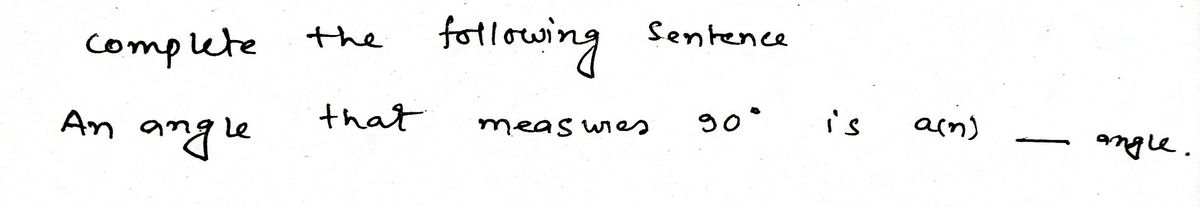 complete the following Sentence
An angle that measures 90° is a(n) __ angle.